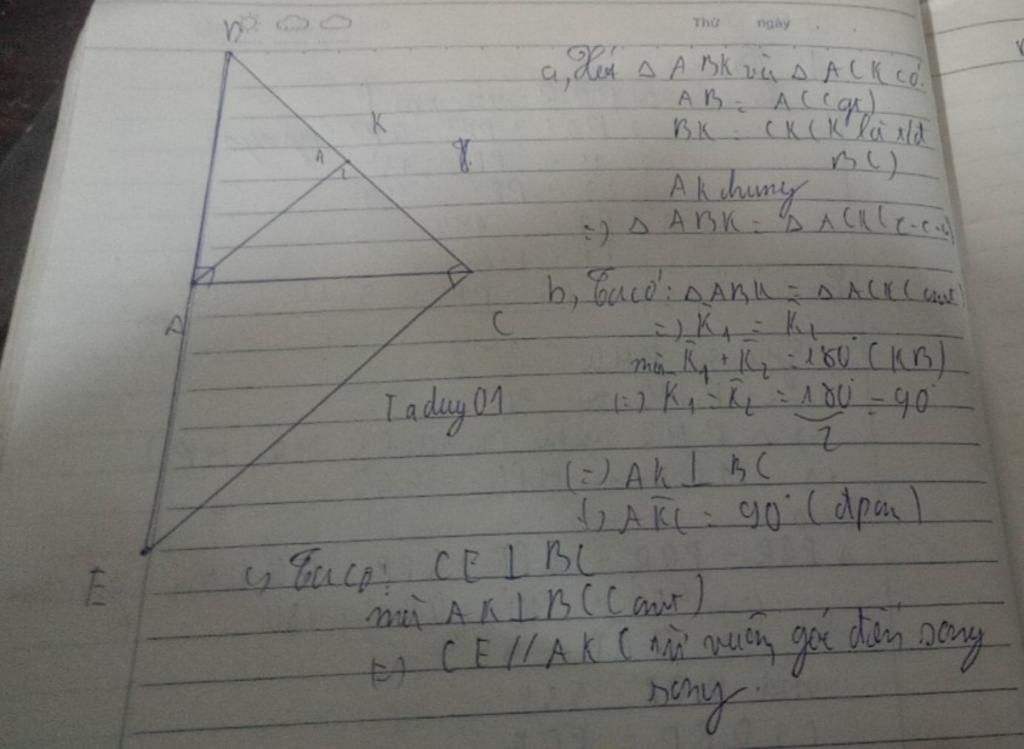 Thứ ngày
B
K
1
2
A
C
E
Taduy01
a, Xét Δ ABK và Δ ACK có:
AB = AC (gt)
BK = CK (K là t/đ
BC)
AK chung
=> Δ ABK = Δ ACK (c-c-c)
b, Ta có: Δ ABK = Δ ACK (cmt)
=> K̂1 = K̂2
mà K̂1 + K̂2 = 180° (KB)
(=) K̂1 = K̂2 = 180° = 90°
2
(=) AK ⊥ BC
AK̂C = 90° (đpcm)
c, Ta có: CE ⊥ BC
mà AK ⊥ BC (cmt)
=> CE // AK (từ vuông góc đến song
song.